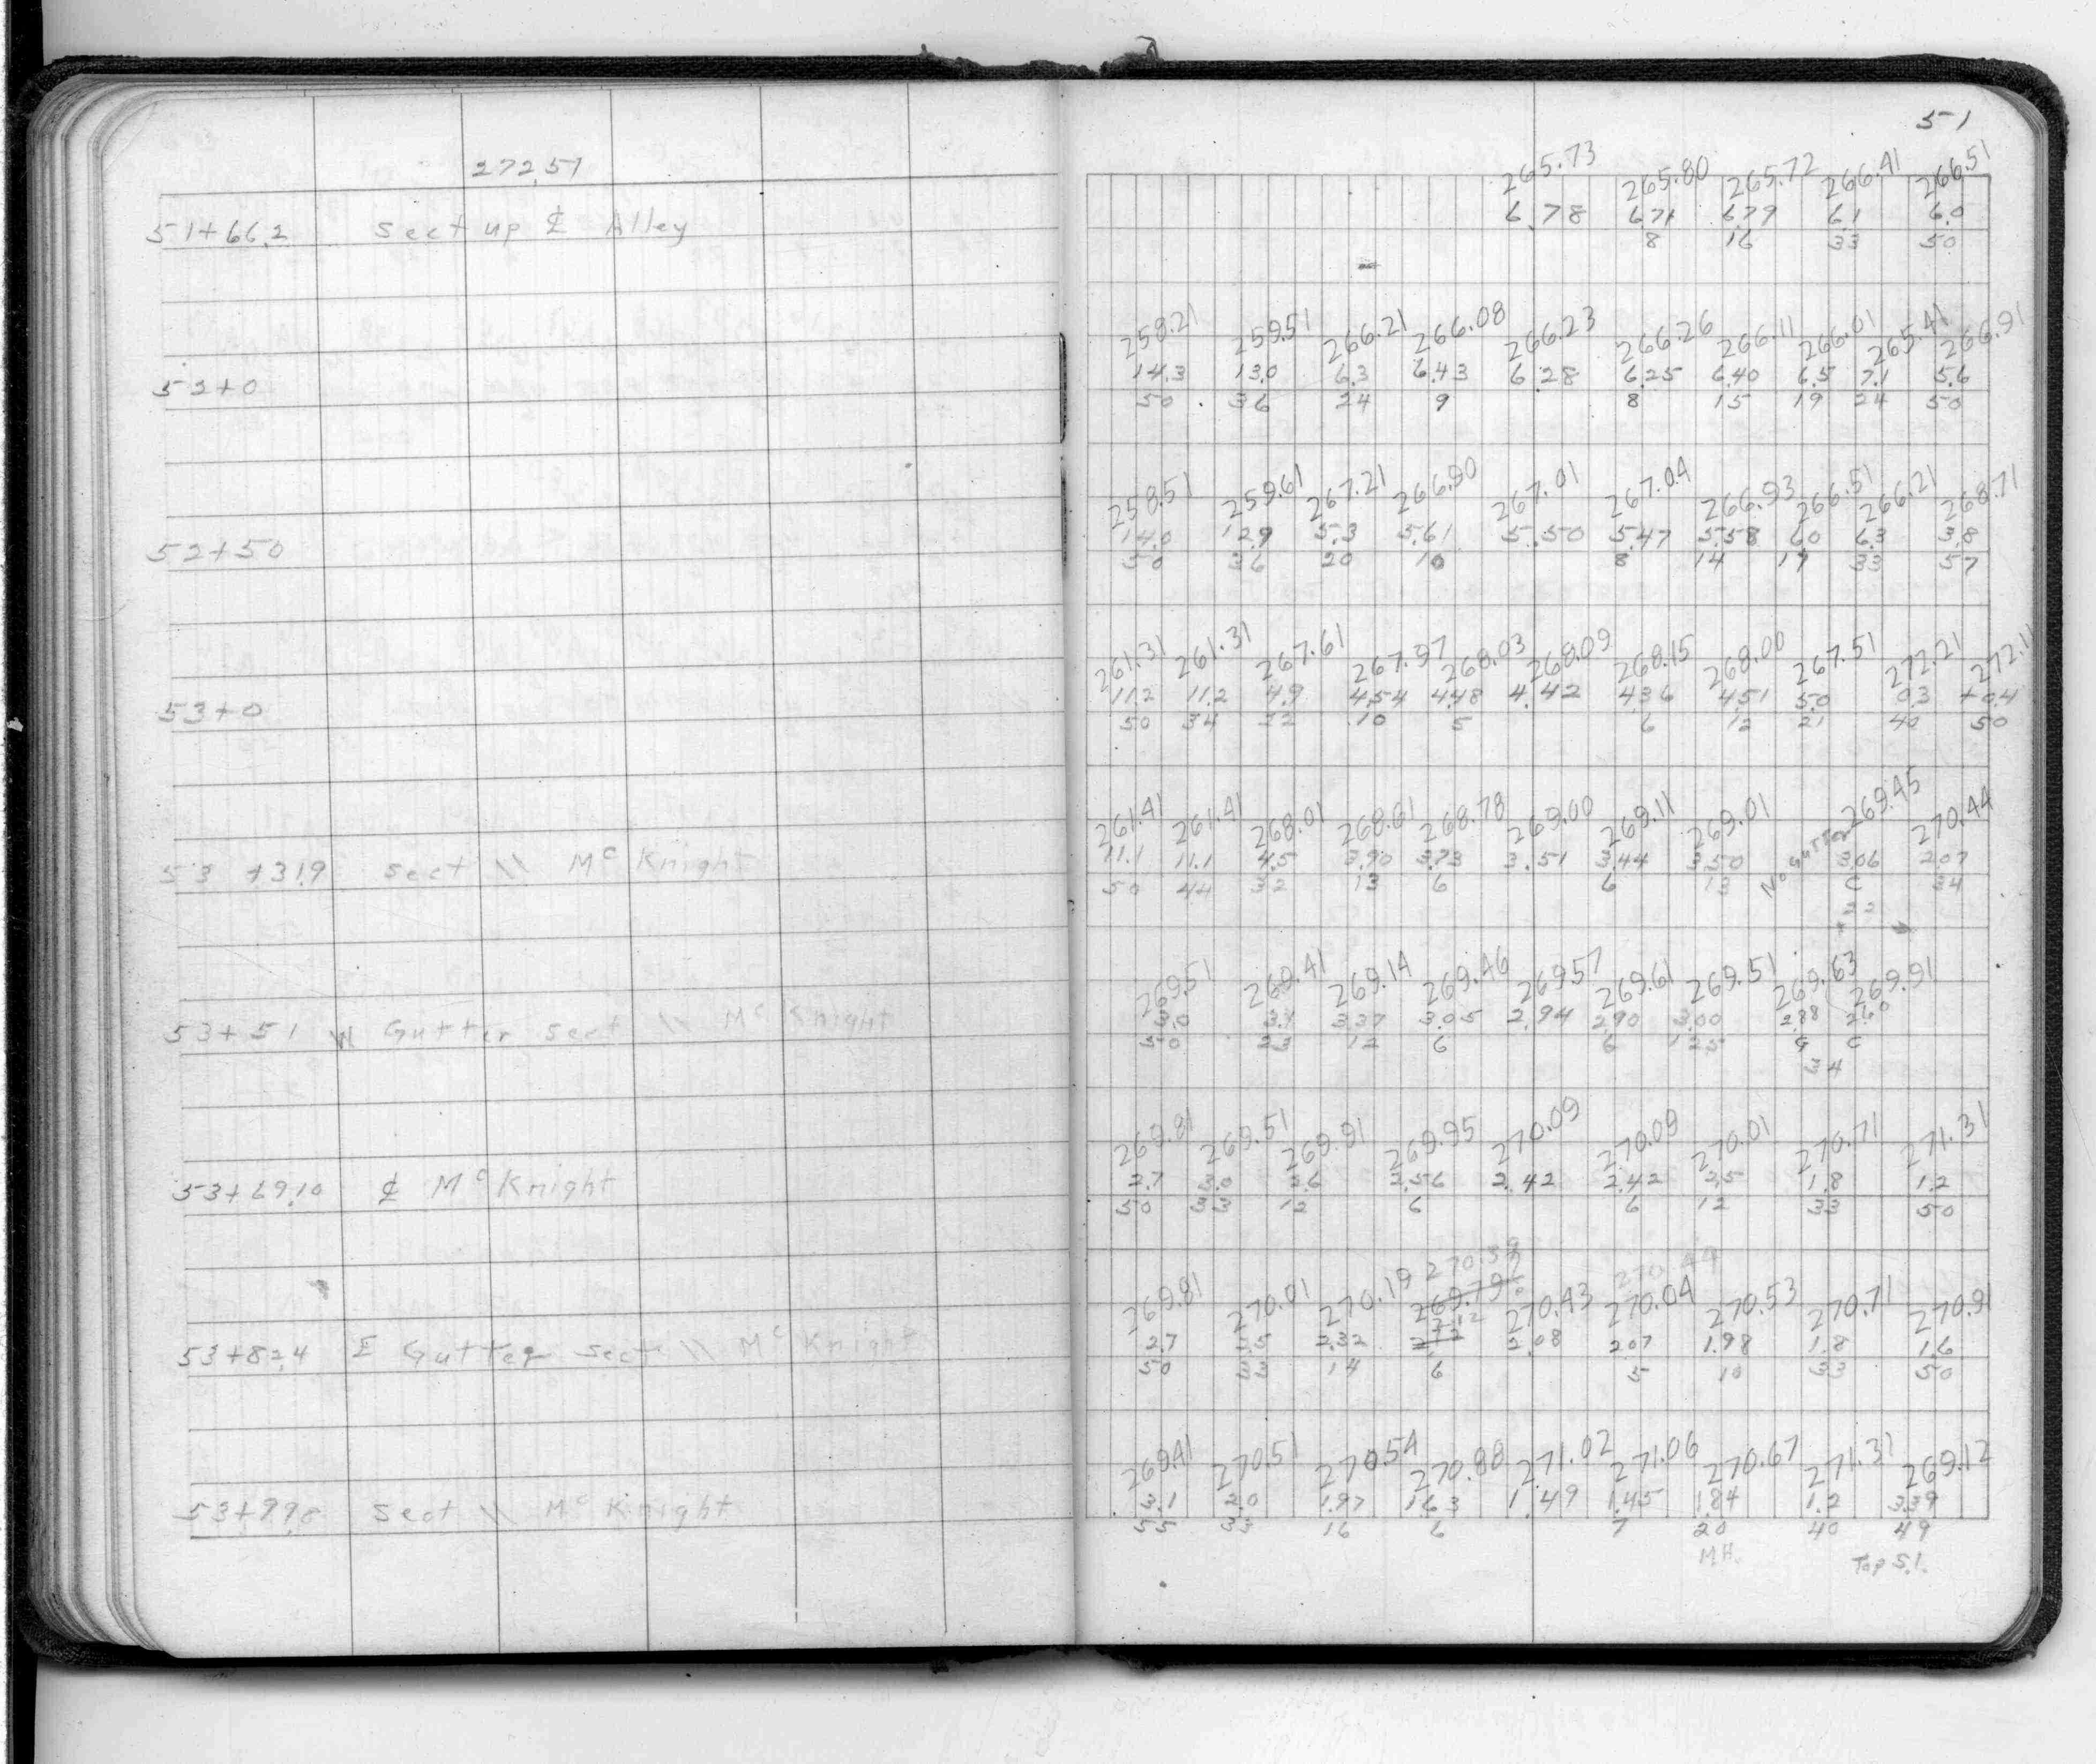 51
272.51
265.73 265.80 265.72 266.41 266.51
51+66.2 Sect up ℄ Alley 6.78 6.71 6.79 6.1 6.0
8 16 33 50
258.21 259.51 266.21 266.08 266.23 266.26 266.11 266.01 265.41 266.91
52+0 14.3 13.0 6.3 6.43 6.28 6.25 6.40 6.5 7.1 5.6
50 36 24 9 8 15 19 24 50
258.51 259.61 267.21 266.90 267.01 267.04 266.93 266.51 266.21 268.71
52+50 14.0 12.9 5.3 5.61 5.50 5.47 5.58 6.0 6.3 3.8
50 36 20 10 8 14 19 33 57
261.31 261.31 267.61 267.97 268.03 268.09 268.15 268.00 267.51 272.21 272.11
53+0 11.2 11.2 4.9 4.54 4.48 4.42 4.36 4.51 5.0 0.3 +0.4
50 34 22 10 5 6 12 21 40 50
261.41 261.41 268.01 268.61 268.78 269.00 269.11 269.01 269.45 270.44
53+31.9 Sect \\ Mc Knight 11.1 11.1 4.5 3.90 3.73 3.51 3.44 3.50 No gutter 3.06 2.07
50 44 32 13 6 6 13 C 34
22
269.51 269.41 269.14 269.46 269.57 269.61 269.51 269.63 269.91
53+51 W Gutter Sect \\ Mc Knight 3.0 3.1 3.37 3.05 2.94 2.90 3.00 2.88 2.60
50 23 12 6 6 12.5 G C
34
269.81 269.51 269.91 269.95 270.09 270.09 270.01 270.71 271.31
53+69.10 ℄ Mc Knight 2.7 3.0 2.6 2.56 2.42 2.42 2.5 1.8 1.2
50 33 12 6 6 12 33 50
270.39 270.44
269.81 270.01 270.19 269.79 270.43 270.04 270.53 270.71 270.91
2.12
53+82.4 E Gutter Sect \\ Mc Knight 2.7 2.5 2.32 2.08 2.07 1.98 1.8 1.6
50 33 14 6 5 10 33 50
269.41 270.51 270.54 270.88 271.02 271.06 270.67 271.31 269.12
53+99.8 Sect \\ Mc Knight 3.1 2.0 1.97 1.63 1.49 1.45 1.84 1.2 3.39
55 33 16 6 7 20 40 49
M.H. Top S.I.